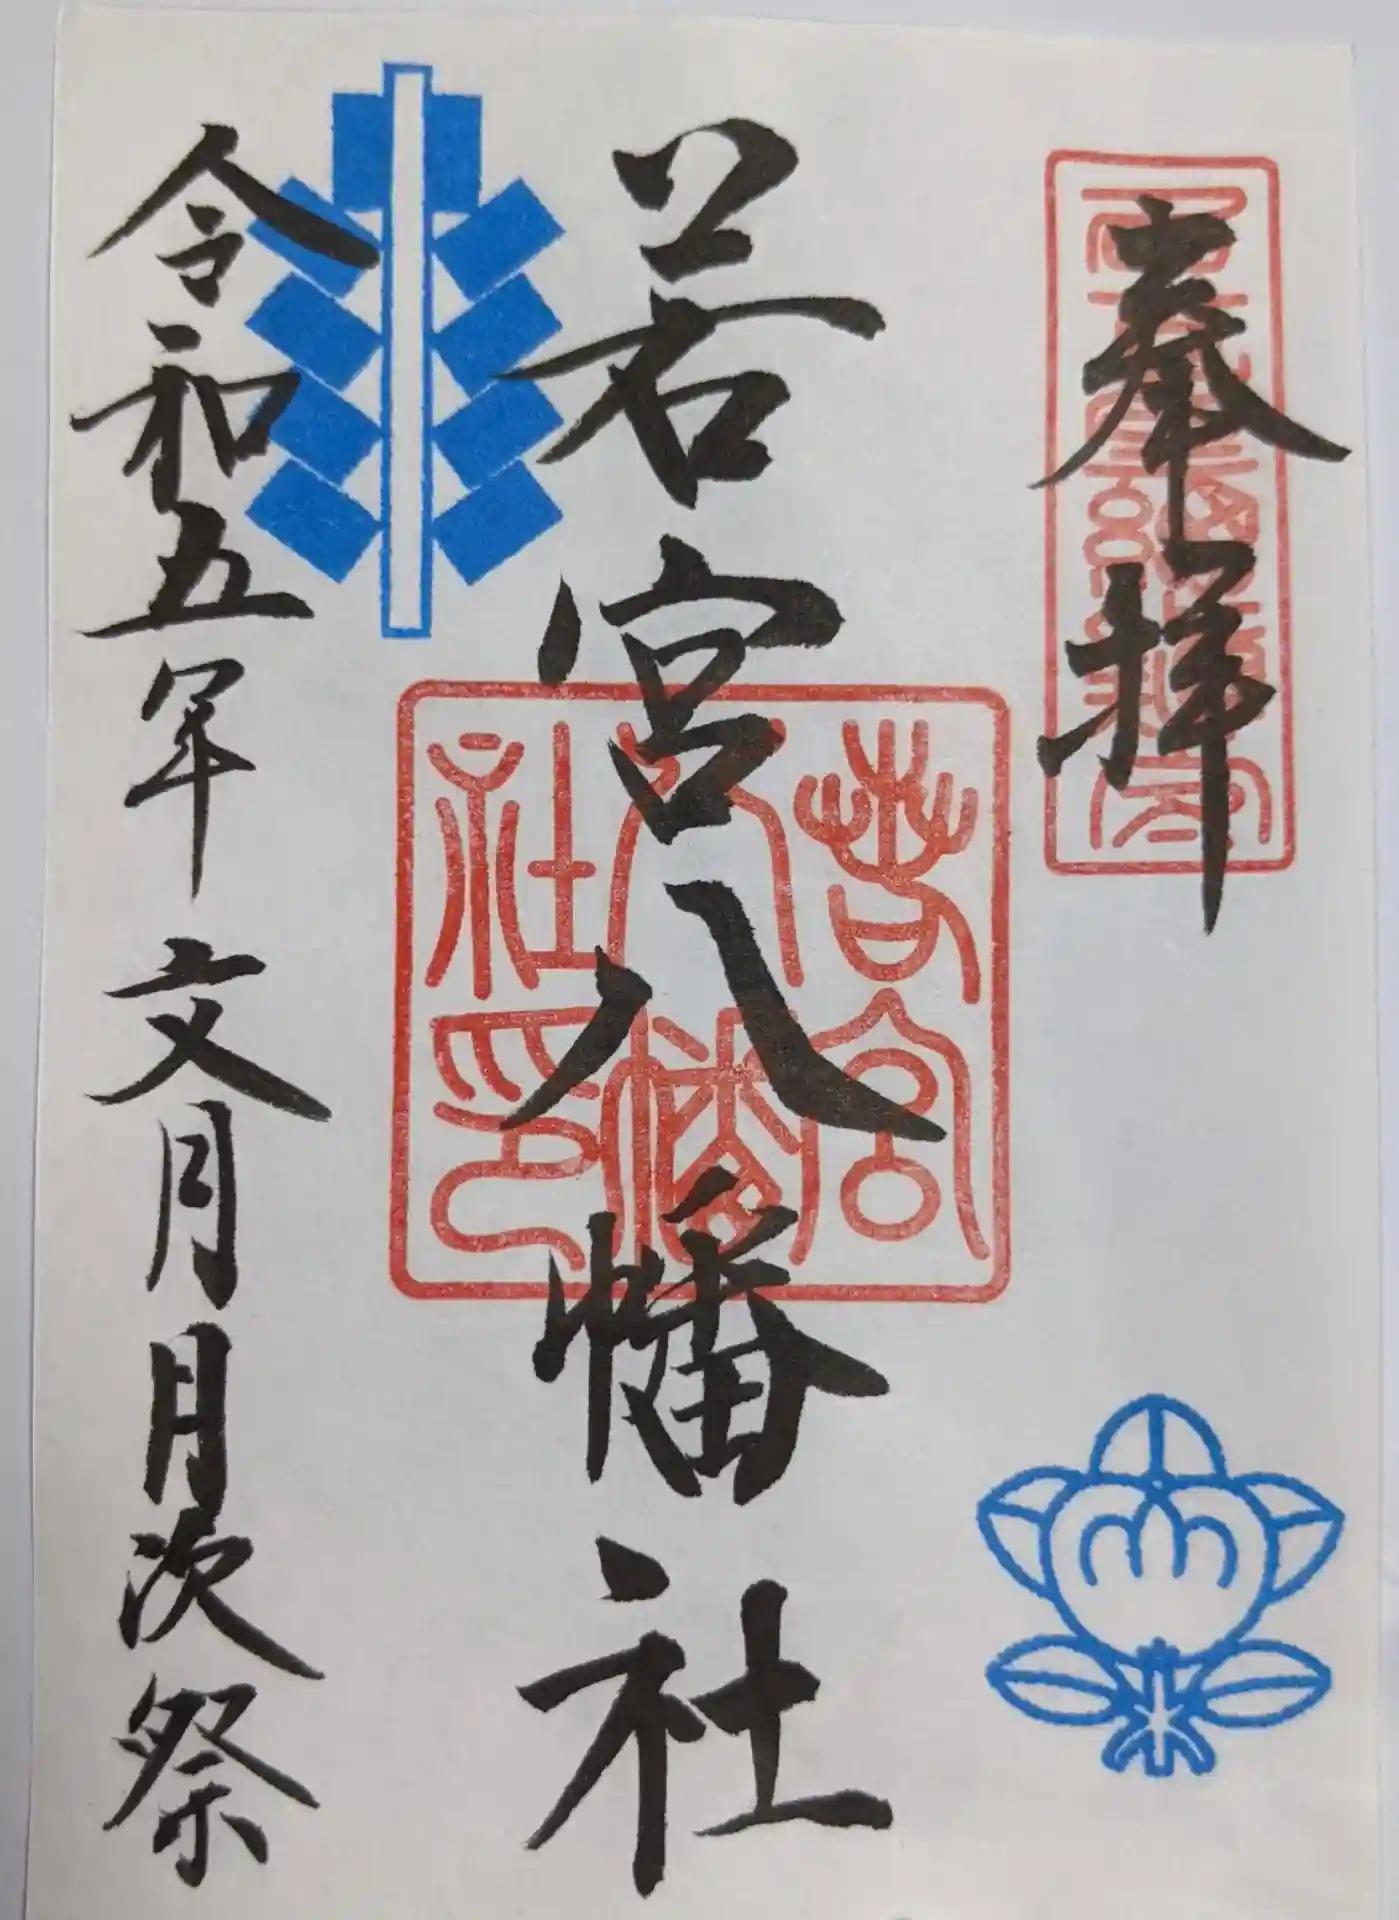 奉拝
若宮八幡社
若宮八幡社印
令和五年文月月次祭